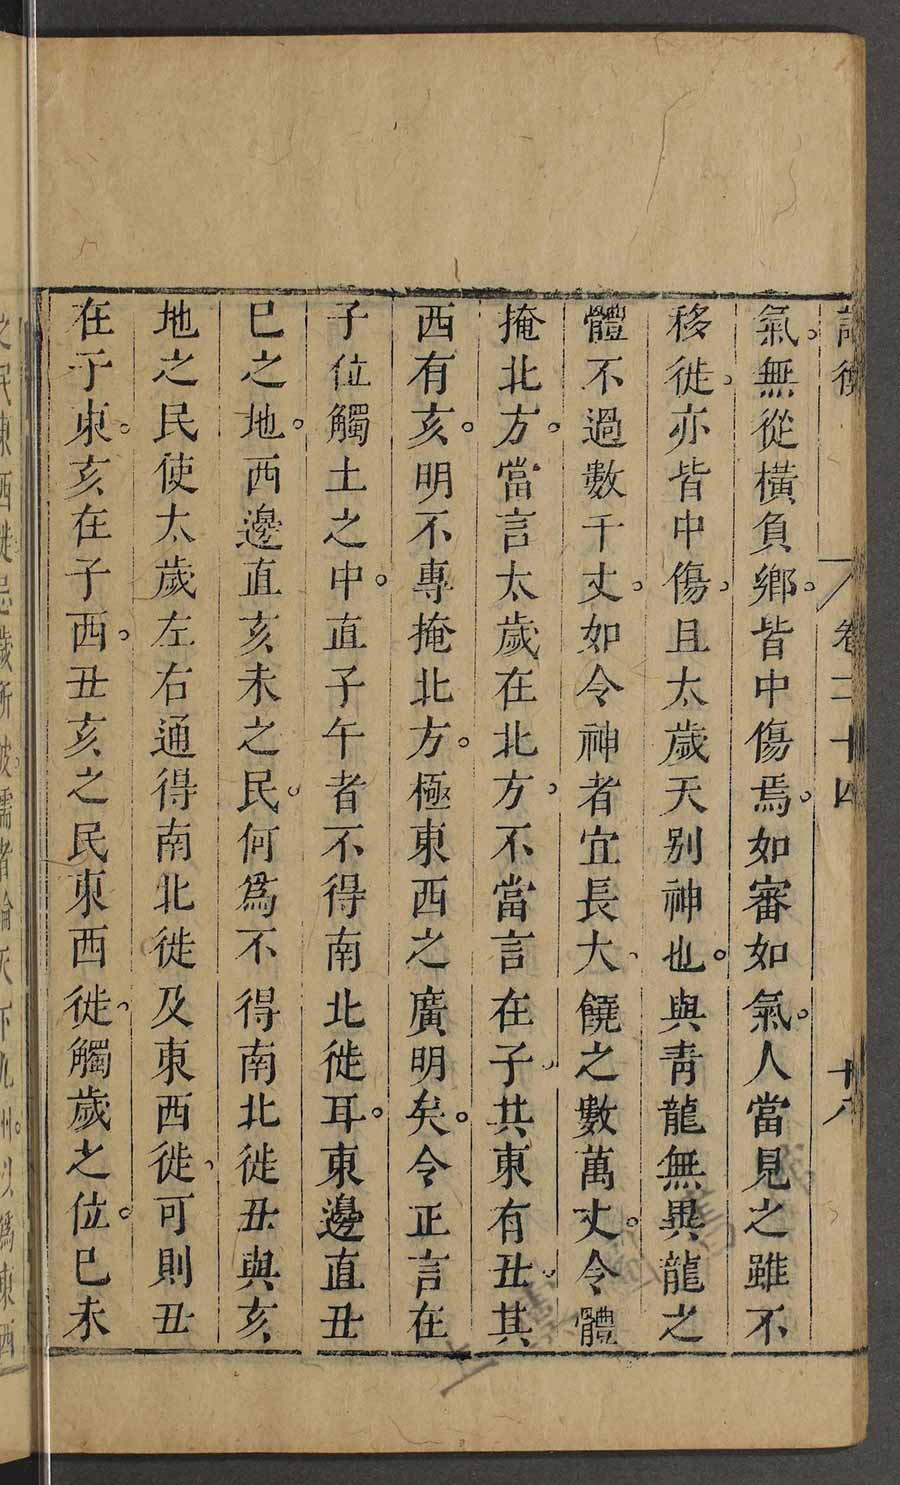 論衡 卷二十四 十八
氣。無從橫負鄉。皆中傷焉。如審如氣。人當見之雖不
移徙。亦皆中傷。且太歲天別神也。與青龍無異龍之
體不過數千丈。如令神者宜長大、饒之數萬丈。令體
掩北方。當言太歲在北方。不當言在子、其東有丑、其
西有亥。明不專掩北方。極東西之廣明矣。令正言在
子位觸土之中。直子午者不得南北徙耳。東邊直丑
巳之地。西邊直亥未之民。何爲不得南北徙丑與亥
地之民使太歲左右通得南北徙及東西徙、可則丑
在于東。亥在子西。丑亥之民東西徙、觸歲之位。巳未
之民東西徙忌歲所破。儒者論天下九州。以爲東西